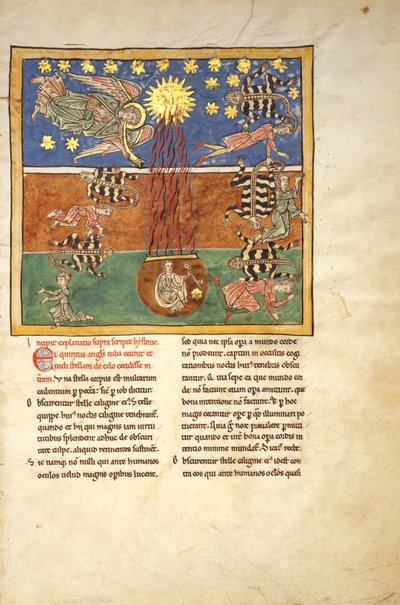 Incipit explanatio supra scripte hystorie.
Et quintus angls tuba cecinit et
uidi stellam de celo cecidisse in
terram. Una stella corpus est multarum
cadentium p peccata. Sic p
Obscurentur stelle caligine. Stelle
quippe huius noctis caligine tenebrantur
quando et hii qui magnis iam uirtu
tibus splendent adhuc de obscuri
tate culpe. aliquid retinentes
Sic namq; nonnulli qui ante humanos
oculos uelud magnis operibus lucent.
sed quia nec ipsa opa a mundo corde
prodeunt. captum in occultis cogi
tationibus noctis huius tenebris obscu
rantur. Qui sepe ea que mundo cor
de non faciunt etiam opa amittunt. que
bona intentione non faciunt. Et p hoc
magis
uerant. Quia g nox preualere pmitti
tur quando et inter bona opa cordis in
tentio minime mundatur. Dicat recte.
Obscurentur stelle caligine ei. id est con
tra eos qui ante humanos oculos quasi